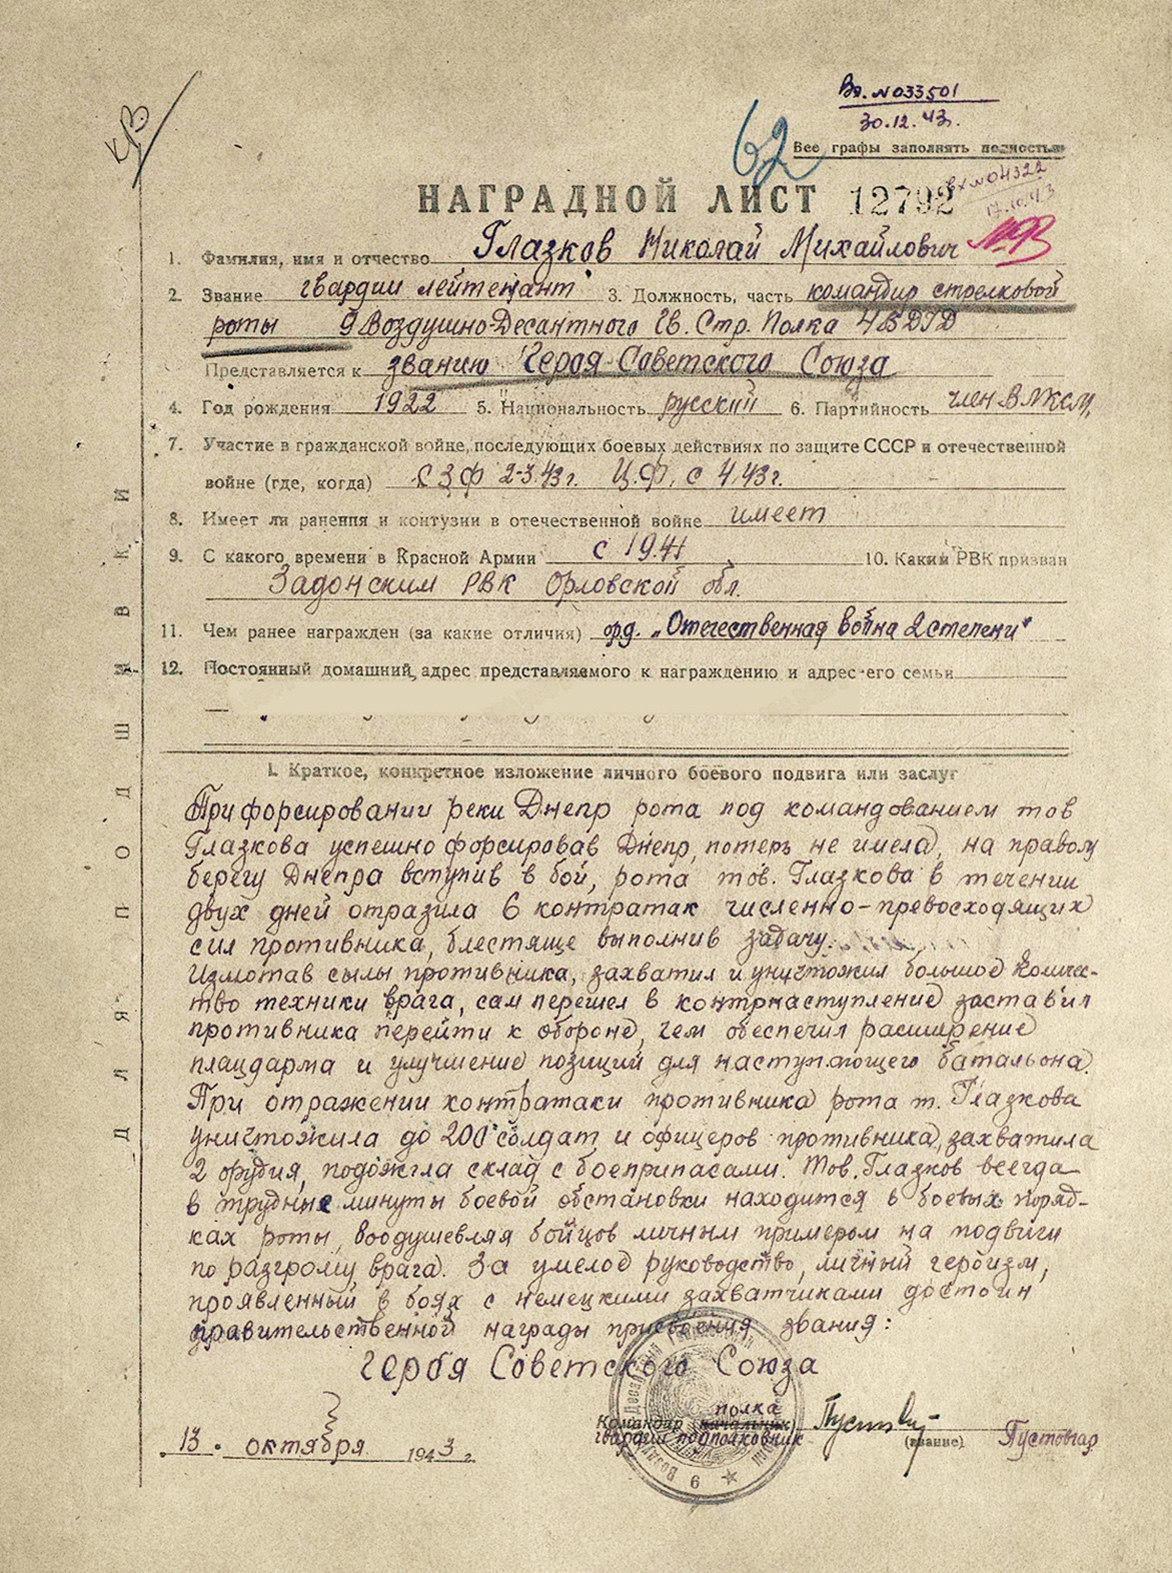 Вх. №033501
30.12.43г.
62
Все графы заполнять полностью
НАГРАДНОЙ ЛИСТ 12792
вх №04322
17.10.43
1. Фамилия, имя и отчество Глазков Николай Михайлович
2. Звание гвардии лейтенант 3. Должность, часть командир стрелковой
роты 9 Воздушно-Десантного Гв. Стр. Полка 4ВДГД
Представляется к званию Героя Советского Союза
4. Год рождения 1922 5. Национальность русский 6. Партийность член ВЛКСМ,
7. Участие в гражданской войне, последующих боевых действиях по защите СССР и отечественной
войне (где, когда) СЗФ 2-3.43г. Ц.Ф. с 4.43г.
8. Имеет ли ранения и контузии в отечественной войне имеет
9. С какого времени в Красной Армии с 1941 10. Каким РВК призван
Задонским РВК Орловской обл.
11. Чем ранее награжден (за какие отличия) орд. „Отечественная война 2 степени"
12. Постоянный домашний адрес представляемого к награждению и адрес его семьи
I. Краткое, конкретное изложение личного боевого подвига или заслуг
При форсировании реки Днепр рота под командованием тов
Глазкова успешно форсировав Днепр, потерь не имела, на правом
берегу Днепра вступив в бой, рота тов. Глазкова в течении
двух дней отразила 6 контратак численно-превосходящих
сил противника, блестяще выполнив задачу.
Измотав силы противника, захватил и уничтожил большое количес-
тво техники врага, сам перешел в контрнаступление заставил
противника перейти к обороне, чем обеспечил расширение
плацдарма и улучшение позиций для наступающего батальона.
При отражении контратаки противника рота т. Глазкова
уничтожила до 200 солдат и офицеров противника, захватила
2 орудия, подожгла склад с боеприпасами. Тов. Глазков всегда
в трудные минуты боевой обстановки находится в боевых поряд-
ках роты, воодушевляя бойцов личным примером на подвиги
по разгрому врага. За умелое руководство, личный героизм,
проявленный в боях с немецкими захватчиками достоин
правительственной награды присвоения звания:
Героя Советского Союза
полка
Командир (начальник)
гвардии подполковник (звание) Пустовгар
13. октября 1943 г.
ДЛЯ ПОДШИВКИ